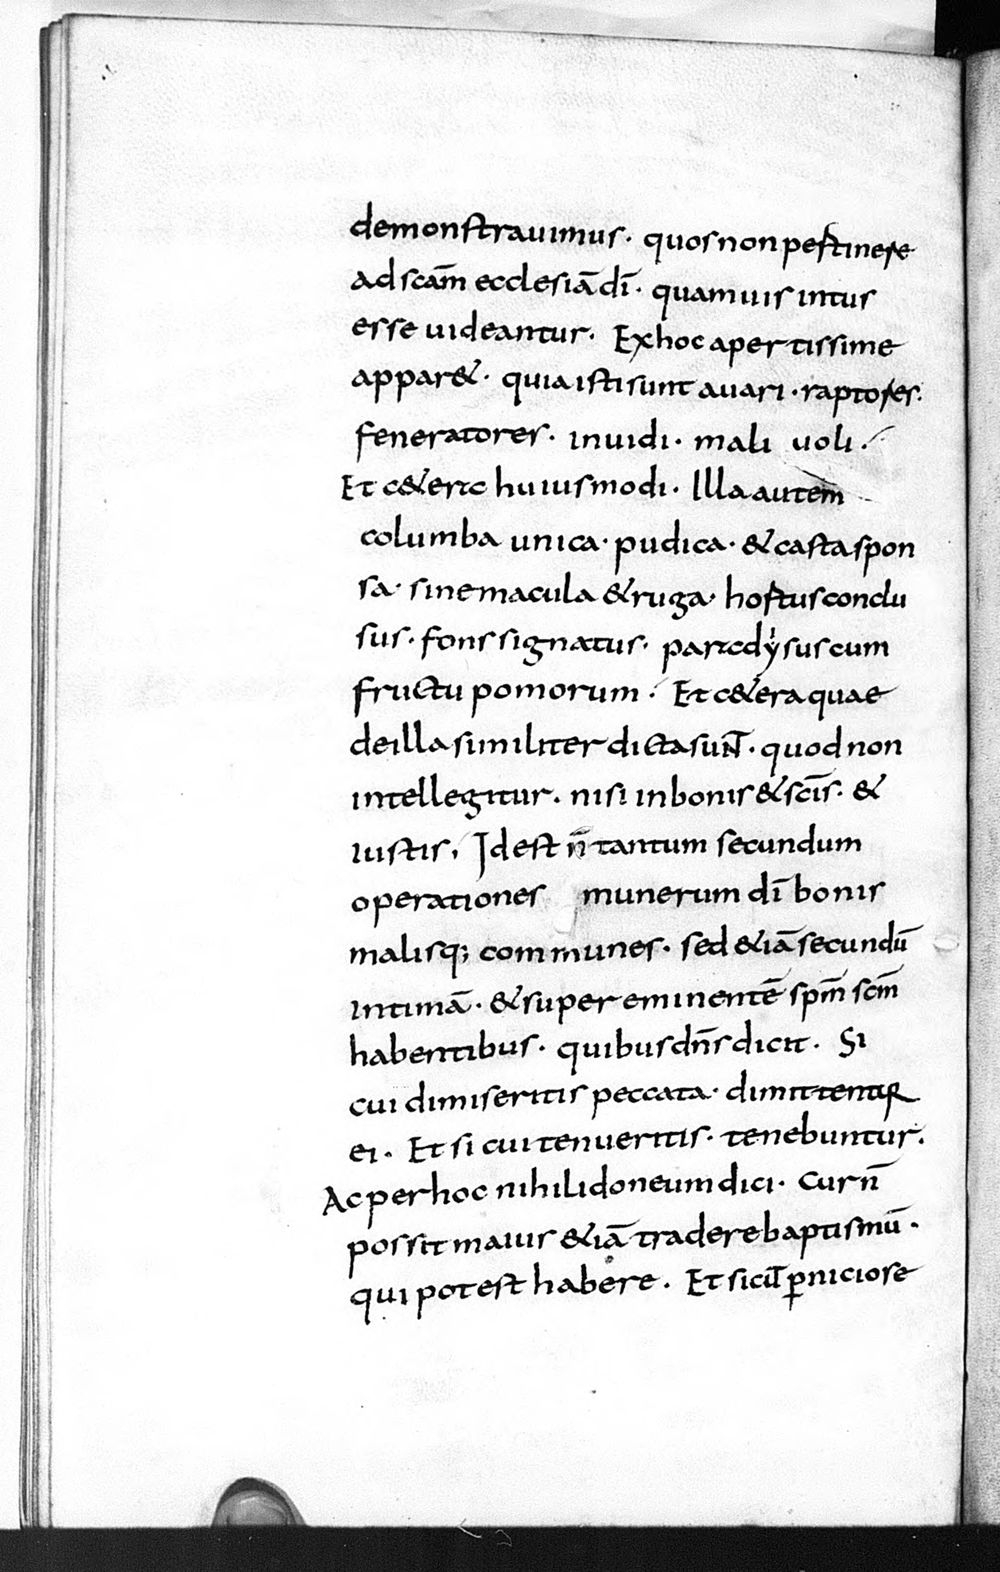 demonstrauimus· quos non pertinere
ad scām ecclesiā dī· quamuis intus
esse uideantur· Ex hoc apertissime
appar&· quia isti sunt auari· raptores·
feneratores· inuidi· mali uoli·
Et c&era huiusmodi· Illa autem
columba unica· pudica· & casta spon
sa· sine macula & ruga· hortus conclu
sus· fons signatus· paradysus cum
fructu pomorum· Et c&era quae
de illa similiter dicta sunt· quod non
intellegitur· nisi in bonis & scīs· &
iustis, Id est n̄ tantum secundum
operationes munerum dī bonis
malisq; communes· sed &iā secundū
intimā· & supereminentē spm̄ scm̄
habentibus· quibus dn̄s dicit· Si
cui dimiseritis peccata· dimittentur
ei· Et si cui tenueritis· tenebuntur.
Ac per hoc nihil idoneum dici· Cur n̄
possit maius &iā tradere baptismū·
qui potest habere· Et sicut p̄niciose